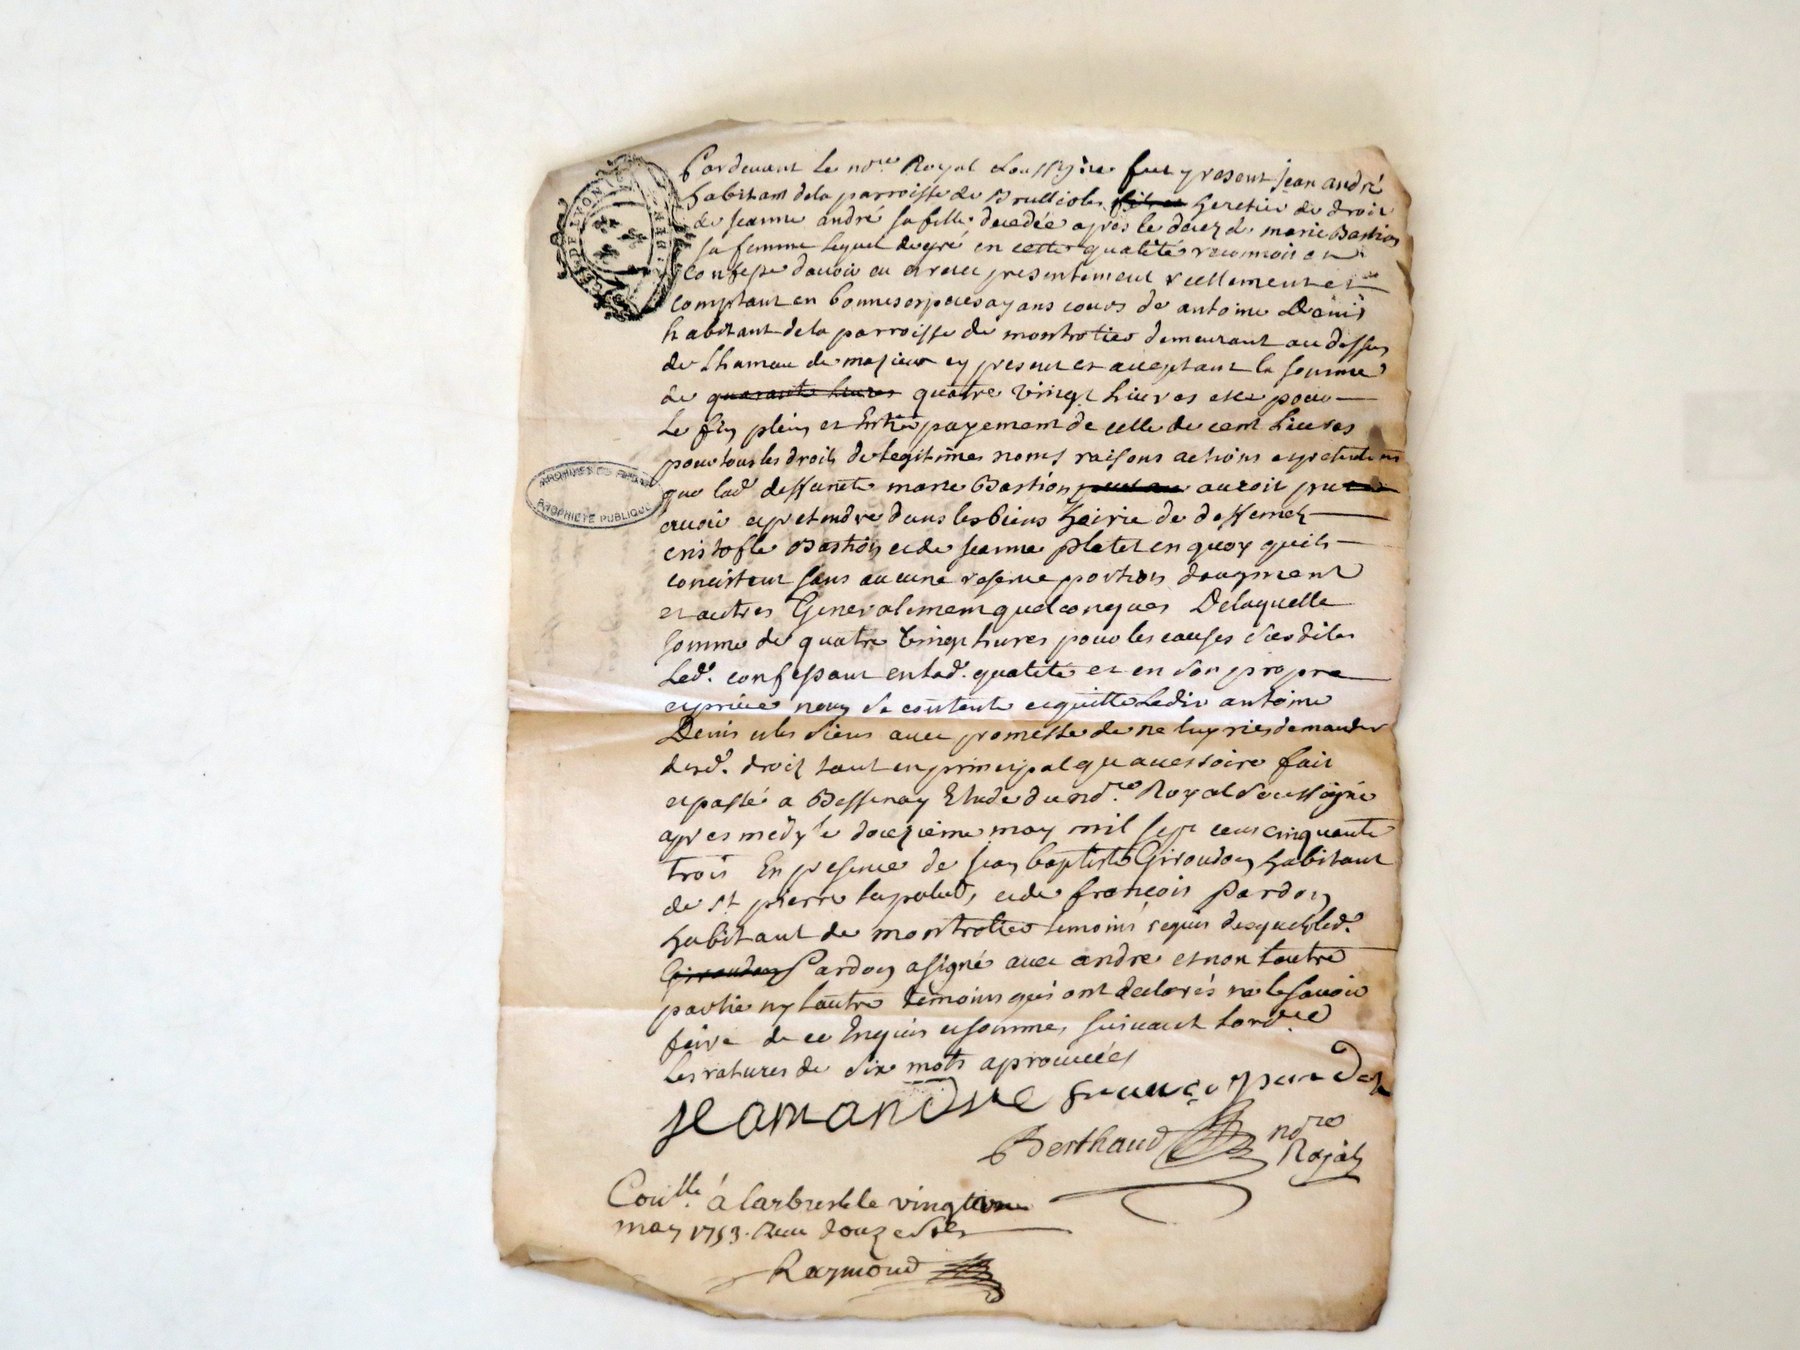 Pardevant Le no.re Royal soussigne fut present jean andré
habitant dela parroisse de Brullioles heretier de droit
de jeanne andré sa fille decedée apres le decez de marie Bastion
sa femme lequel de gré en cette qualité reconnoit et
confesse davoir eu et recu presentement reellement et
comptant en bonnes especes ayans cours de antoine Denis
habitant dela parroisse de montrotier demeurant au dessus
de Lhameau de mazieux cy present et acceptant la somme
de quarante livres quatre vingt livres et ce pour
Le fin plein et Entier payement de celle de cent Livres
pour tous les droits de legitimes noms raisons actions et pretentions
que lad. deffunte marie Bastion auroit pu
avoir et pretendre dans les biens hoirie de deffunct
cristofle Bastion et de jeanne platet en quoy quils
consistent sans aucune reserve portion daugment
et autres Generalement quelconques Delaquelle
somme de quatre vingt livres pour les causes susdites
Led. confessant en lad. qualité et en son propre
et privé nom se contente et quitte Ledit antoine
Denis et les siens avec promesse de ne luy rien demander
desd. droits tant en principal qu accessoire fait
et passé a Bessenay Etude du no.re Royal Soussigné
apres midy le douzieme may mil sept cent cinquante
trois En presence de jean baptiste Giroudon habitant
de st pierre lapalud, et de françois Pardon
habitant de montrotier temoins requis desquels led.
Giroudon Pardon a signé avec andre et non lautre
partie ny lautre temoins qui ont declarés ne le savoir
faire de ce Enquis et somme, suivant lord.ce
Les ratures de six mots aprouvées
jeamandre françois pardon
Berthaud no.re
Royal
Con.lle à Larbresle le vingt
may 1753. Reçu douze sols
Raymond
GEN. DE LYON
ARCHIVES DU RHONE
PROPRIETE PUBLIQUE